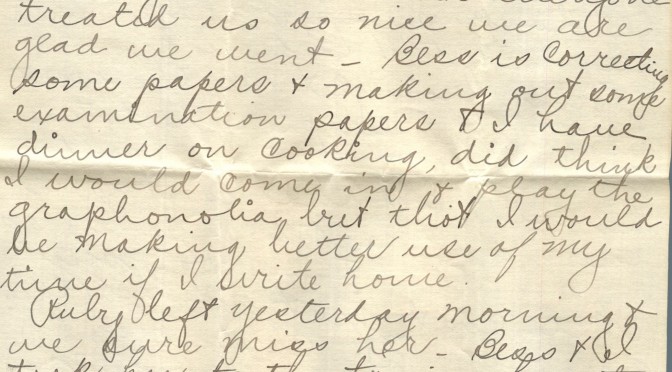 treated us so nice we are
glad we went - Bess is correcting
some papers & making out some
examination papers & I have
dinner on cooking, did think
I would come in & play the
graphonolia but thot I would
be making better use of my
time if I write home.
Ruby left yesterday morning &
we sure miss her - Bess & I